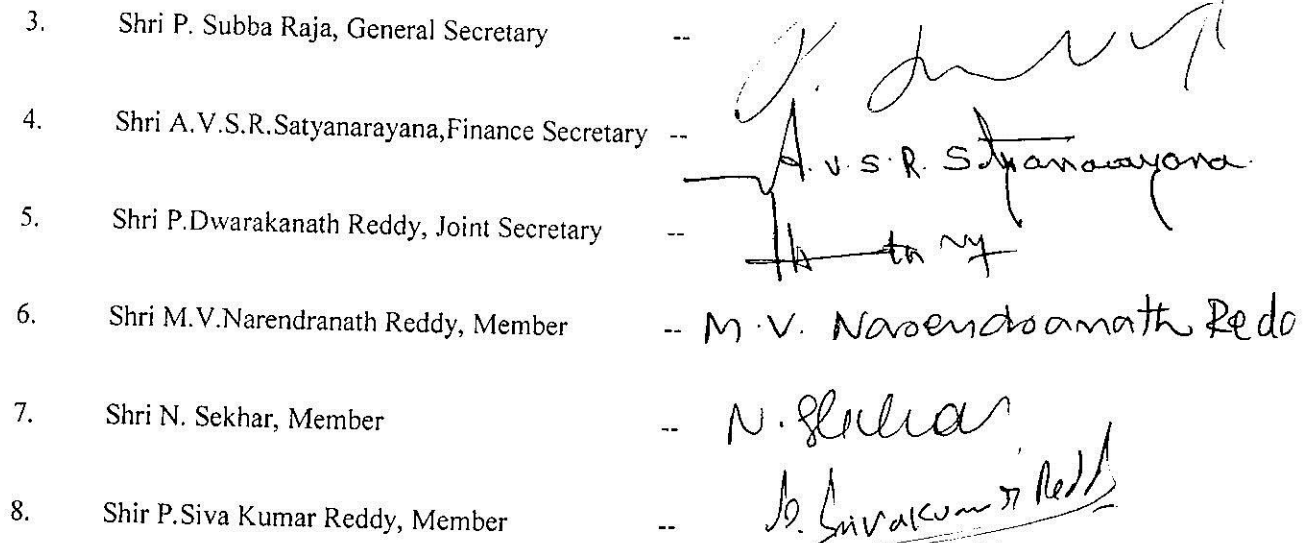 3. Shri P. Subba Raja, General Secretary --
4. Shri A.V.S.R.Satyanarayana,Finance Secretary -- A.V.S.R. Satyanarayana
5. Shri P.Dwarakanath Reddy, Joint Secretary --
6. Shri M.V.Narendranath Reddy, Member -- M.V. Narendranath Redd
7. Shri N. Sekhar, Member -- N. Shekhar
8. Shir P.Siva Kumar Reddy, Member -- P. Sivakumar Reddy